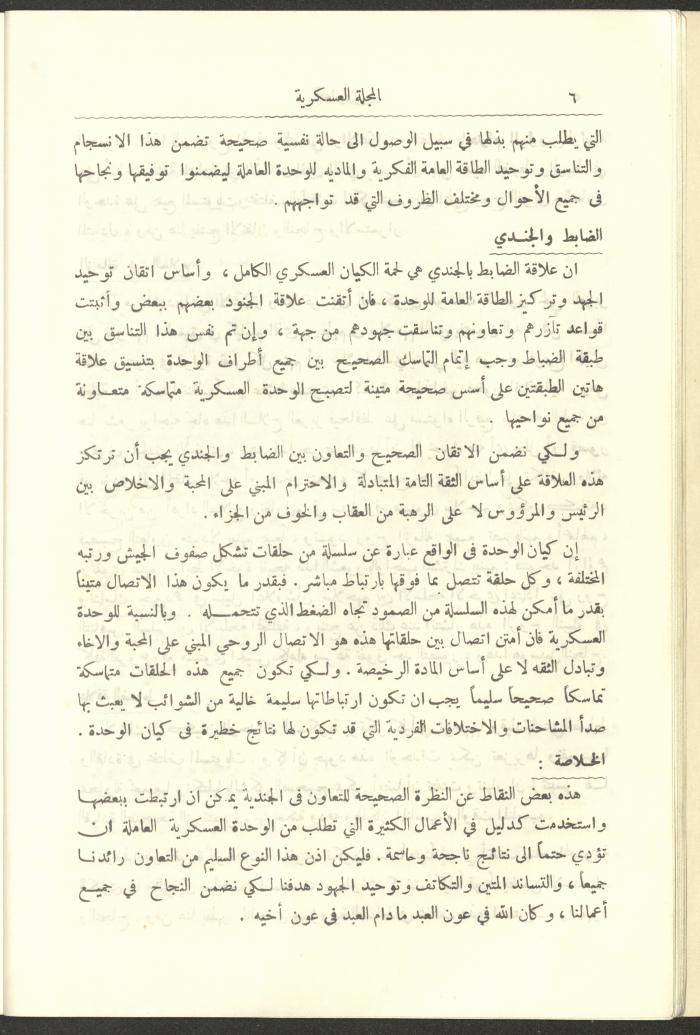 ٦
المجلة العسكرية
التي يطلب منهم بذلها في سبيل الوصول الى حالة نفسية صحيحة تضمن هذا الانسجام
والتناسق وتوحيد الطاقة العامة الفكرية والماديه للوحدة العاملة ليضمنوا توفيقها ونجاحها
فى جميع الأحوال ومختلف الظروف التي قد تواجههم .
الضابط والجندي
ان علاقة الضابط بالجندي هي لحمة الكيان العسكري الكامل ، وأساس اتقان توحيد
الجهد وتركيز الطاقة العامة للوحدة ، فان أتقنت علاقة الجنود بعضهم ببعض وأثبتت
قواعد تآزرهم وتعاونهم وتناسقت جهودهم من جهة ، وإن تم نفس هذا التناسق بين
طبقة الضباط وجب إتمام التماسك الصحيح بين جميع أطراف الوحدة بتنسيق علاقة
هاتين الطبقتين على أسس صحيحة متينة لتصبح الوحدة العسكرية متماسكة متعاونة
من جميع نواحيها .
ولكي نضمن الاتقان الصحيح والتعاون بين الضابط والجندي يجب أن ترتكز
هذه العلاقة على أساس الثقة التامة المتبادلة والاحترام المبني على المحبة والاخلاص بين
الرئيس والمرؤوس لا على الرهبة من العقاب والخوف من الجزاء .
إن كيان الوحدة فى الواقع عبارة عن سلسلة من حلقات تشكل صفوف الجيش ورتبه
المختلفة ، وكل حلقة تتصل بما فوقها بارتباط مباشر . فبقدر ما يكون هذا الاتصال متيناً
بقدر ما أمكن لهذه السلسلة من الصمود تجاه الضغط الذي تتحمله . وبالنسبة للوحدة
العسكرية فان أمتن اتصال بين حلقاتها هذه هو الاتصال الروحي المبني على المحبة والاخاء
وتبادل الثقه لا على أساس المادة الرخيصة . ولكي تكون جميع هذه الحلقات متماسكة
تماسكاً صحيحاً سليماً يجب ان تكون ارتباطاتها سليمة خالية من الشوائب لا يعبث بها
صدأ المشاحنات والاختلافات الفردية التي قد تكون لها نتائج خطيرة فى كيان الوحدة .
الخلاصة :
هذه بعض النقاط عن النظرة الصحيحة للتعاون فى الجندية يمكن ان ارتبطت ببعضها
واستخدمت كدليل في الأعمال الكثيرة التي تطلب من الوحدة العسكرية العاملة ان
تؤدي حتماً الى نتائج ناجحة وحاسمة . فليكن اذن هذا النوع السليم من التعاون رائدنا
جميعاً ، والتساند المتين والتكاتف وتوحيد الجهود هدفنا لكي نضمن النجاح في جميع
أعمالنا ، وكان الله في عون العبد مادام العبد فى عون أخيه .